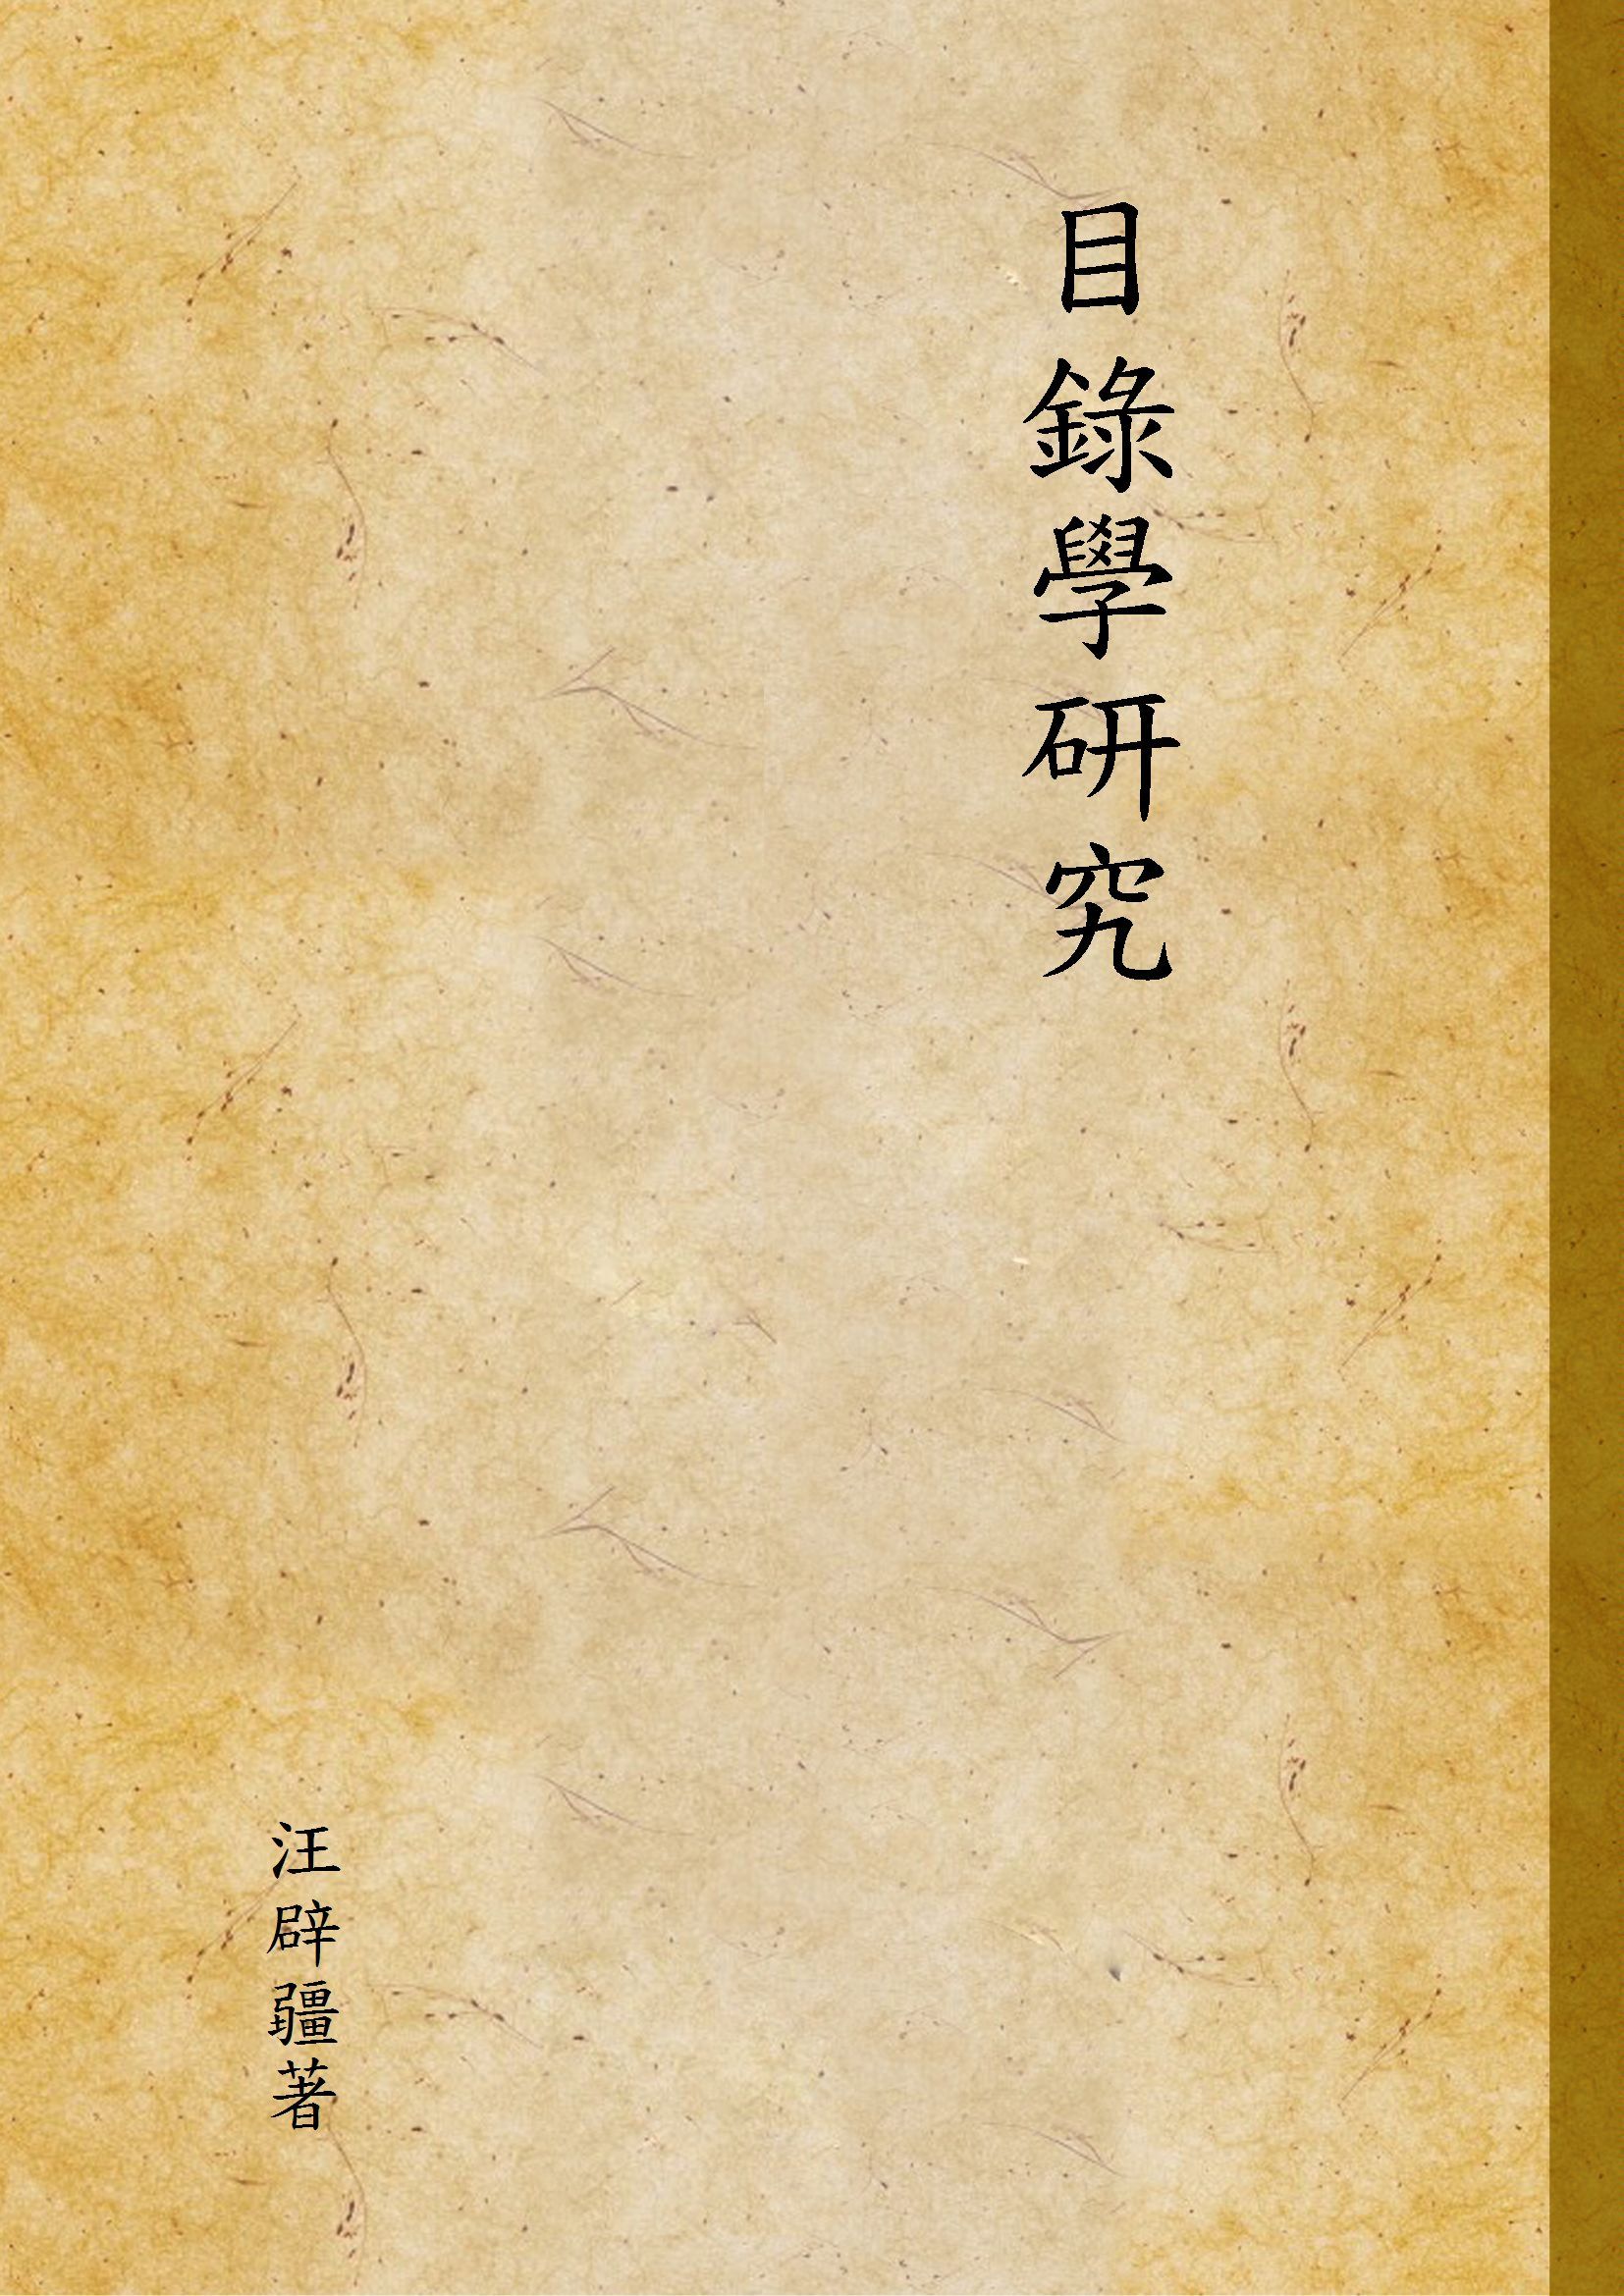 目錄學研究
汪辟疆著